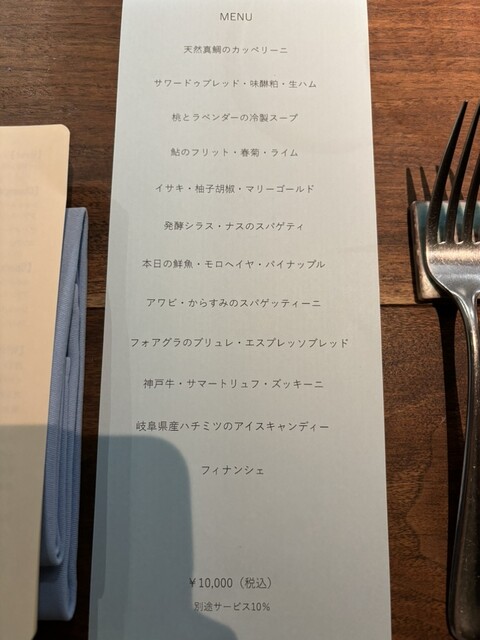 MENU
天然真鯛のカッペリーニ
サワードゥブレッド・味醂粕・生ハム
桃とラベンダーの冷製スープ
鮎のフリット・春菊・ライム
イサキ・柚子胡椒・マリーゴールド
発酵シラス・ナスのスパゲティ
本日の鮮魚・モロヘイヤ・パイナップル
アワビ・からすみのスパゲッティーニ
フォアグラのブリュレ・エスプレッソブレッド
神戸牛・サマートリュフ・ズッキーニ
岐阜県産ハチミツのアイスキャンディー
フィナンシェ
¥10,000（税込）
別途サービス10%